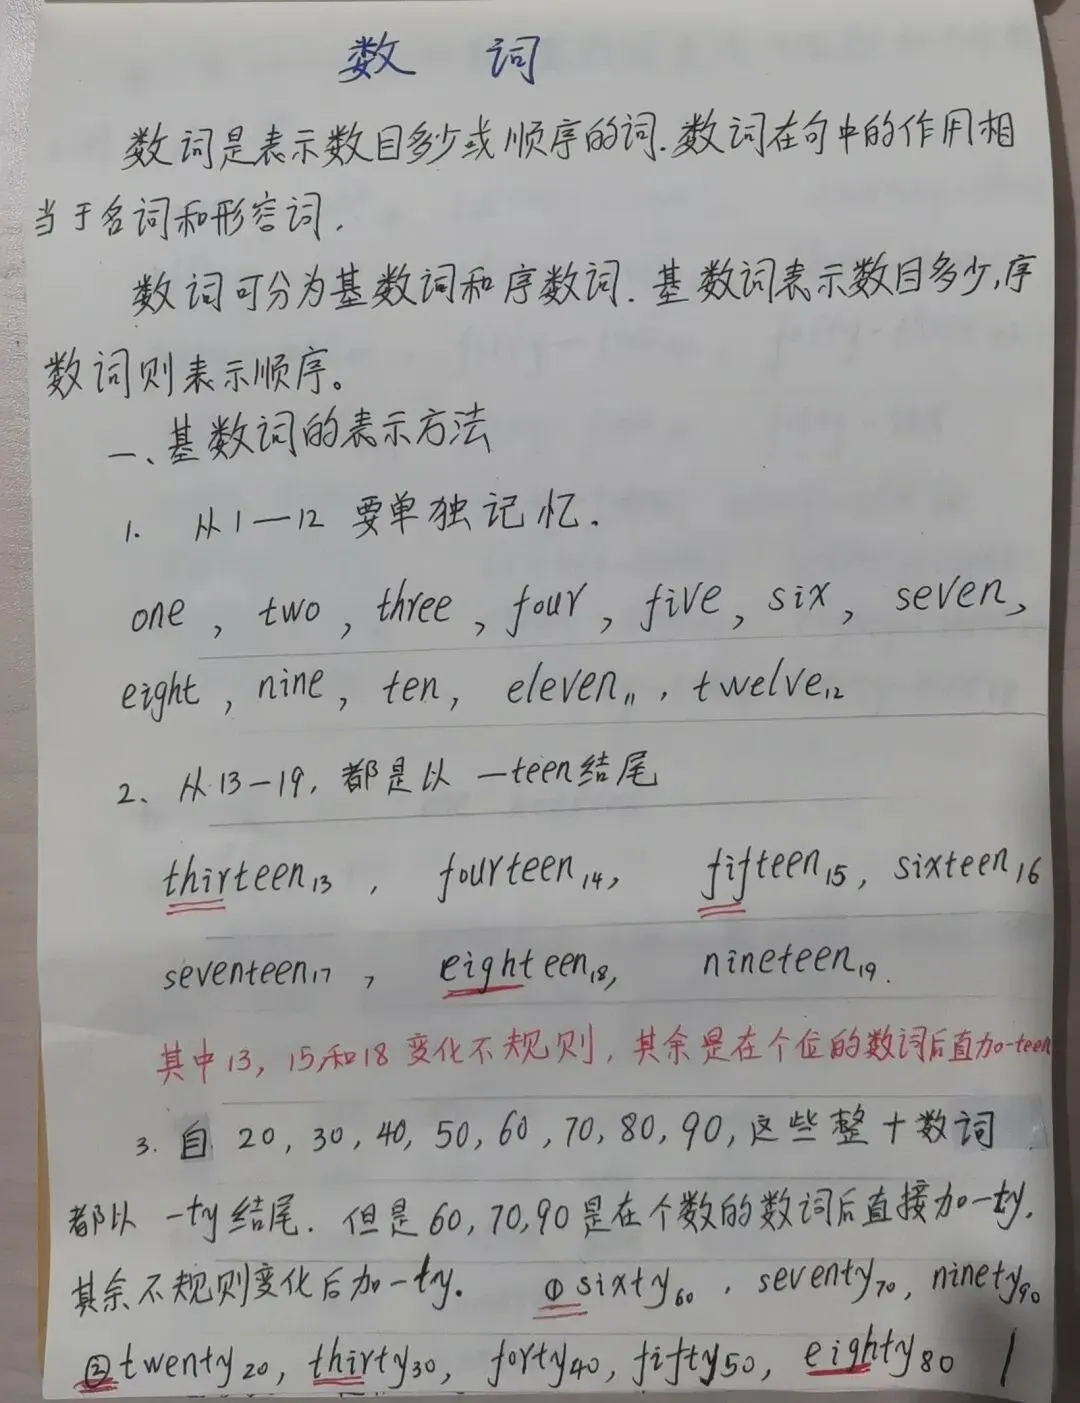 数 词
数词是表示数目多少或顺序的词.数词在句中的作用相
当于名词和形容词.
数词可分为基数词和序数词.基数词表示数目多少,序
数词则表示顺序。
一、基数词的表示方法
1. 从1—12 要单独记忆.
one, two, three, four, five, six, seven,
eight, nine, ten, eleven11, twelve12
2、从13-19,都是以 -teen结尾
thirteen13, fourteen14, fifteen15, sixteen16
seventeen17, eighteen18, nineteen19.
其中13, 15和18 变化不规则, 其余是在个位的数词后直加-teen
3. 自 20, 30, 40, 50, 60, 70, 80, 90, 这些整十数词
都以 -ty 结尾. 但是60, 70, 90 是在个数的数词后直接加-ty.
其余不规则变化后加-ty. ① sixty60, seventy70, ninety90
② twenty20, thirty30, forty40, fifty50, eighty80